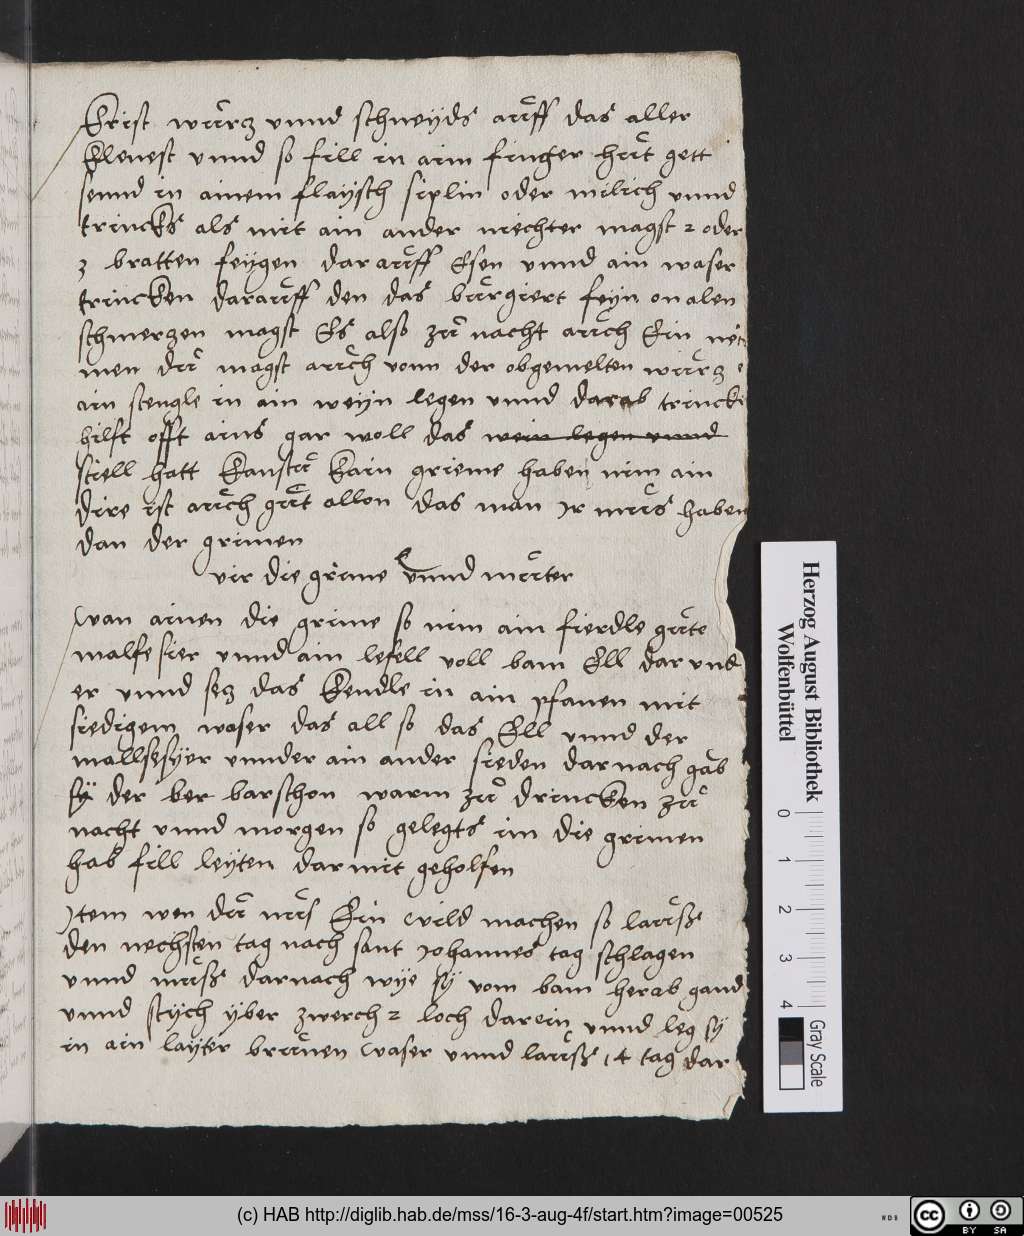 Krist wurz vnnd schneyds auff das aller
klenest vnnd so fill in aim finger huet gett
sennd in ainem flaysch siplin oder milich vnnd
trincks als mit ain ander niechter magst 2 oder
3 bratten feygen darauff Essen vnnd ain waser
trincken darauff den das burgiert feyn on alen
schmerzen magst Es also zuo nacht auch Ein
men du magst auch vonn der obgemelten wurz
ain stengle in ain weyn legen vnnd darab trincke
hilft offt ains gar woll das wein legen vnnd
stiell hatt kanstu kain grieme haben nim ain
dire ist auch guet allon das man Ir mues haben
dan der grimen
vir die grime vnnd mueter
Wan ainen die grime so nim ain fierdle guete
malfesier vnnd ain lefell voll bam Ell dar vnd
er vnnd sez das kendle in ain pfanen mit
siedigem waser das all so das Ell vnnd der
mallsesyer vnnder ain ander sieden darnach gäb
sy der ber barschon warm zuo drincken zuo
nacht vnnd morgen so gelegts im die grimen
hab fill leyten darmit geholfen
Item wen du nus Ein wild machen so lauß
den nechsten tag nach sant Johannes tag schlagen
vnnd nuß darnach wye sy vom bam herab gand
vnnd stych yber zwerch 2 loch darein vnnd leg sy
in ain layter brunen waser vnnd lauß 14 tag dar
Herzog August Bibliothek
Wolfenbüttel
0
1
2
3
4
Gray Scale
(c) HAB http://diglib.hab.de/mss/16-3-aug-4f/start.htm?image=00525
cc BY SA